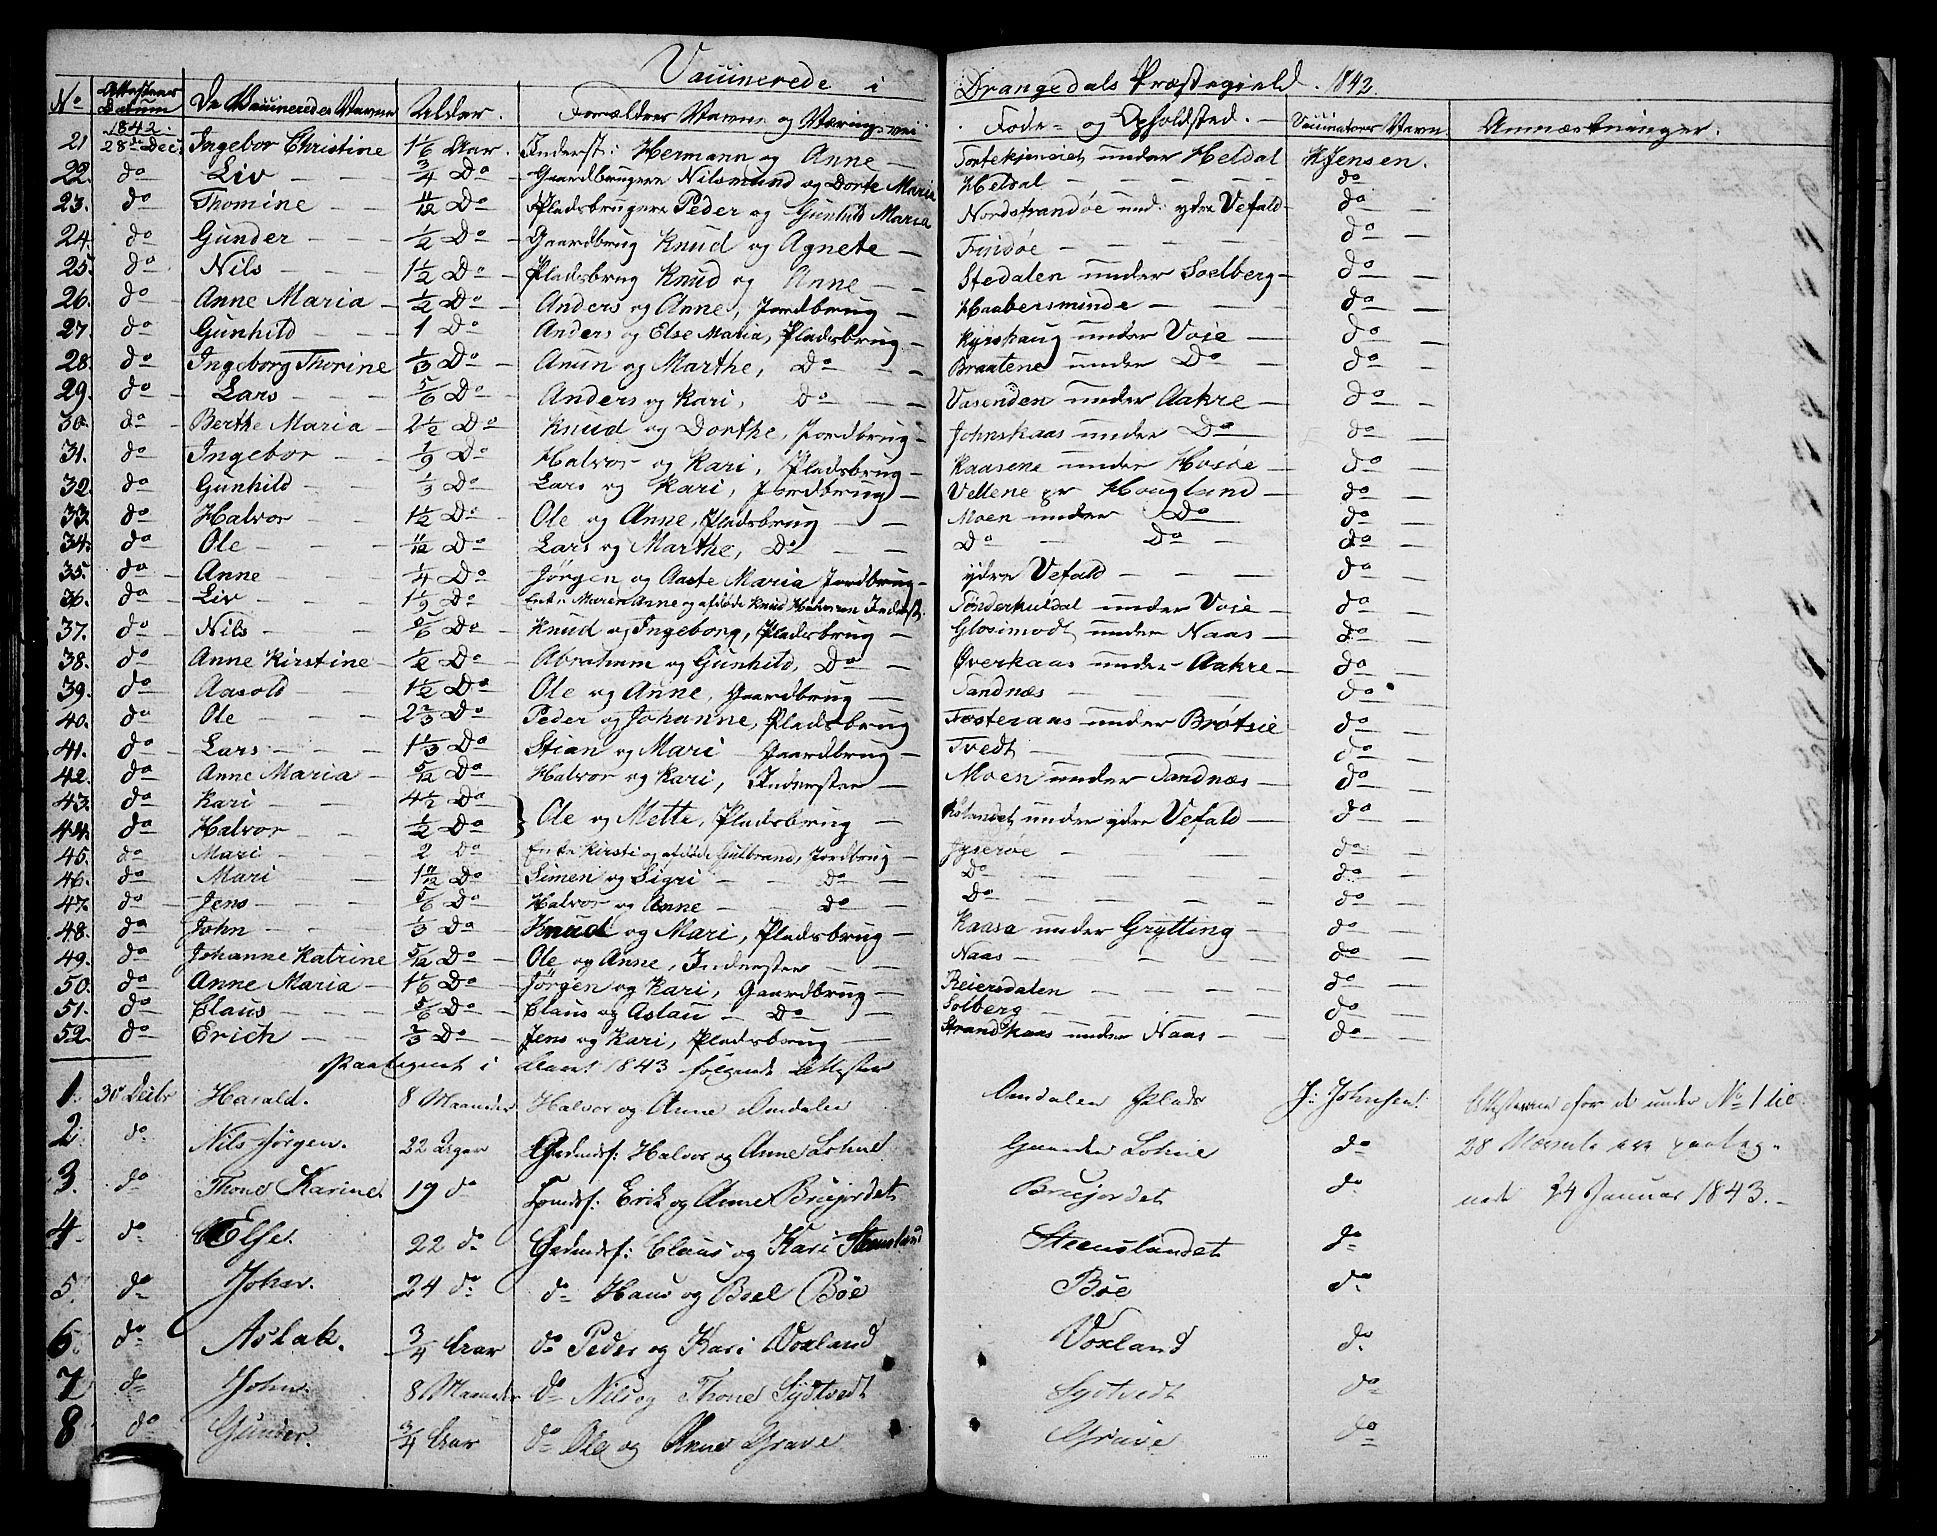 Vaccinerede i Drangedals Præstegield. 1842.
No Attestens Datum De Vaccineredes Navne Alder. Forældres Navne og Næringsvei Føde- og Opholdsted. Vaccinators Navn Anmærkninger.
21 1842. 28de Dec. Ingebor Christine 1 1/6 Aar. Inderst: Hermann og Anne Tortekjerneiet under Heldal K Jensen.
22. do Liv 3/4 Do Gaardbrugere Nilsmund og Dorte Maria Heldal do
23. do Thomine 11/12 Do Pladsbrugere Peder og Gunhild Maria Nordstrandøe und: ydre Vefald do
24. do Gunder 1/2 Do Gaardbrug Knud og Agnete Frisdøe do
25. do Nils 1 1/2 Do Pladsbrug Knud og Anne Stedalen under Soelberg do
26. do Anne Maria 1/2 Do Anders og Anne, Jordbrug Haabersminde do
27. do Gunhild 1 Do Anders og Else Maria, Pladsbrug Kyrshaug under Voje do
28. do Ingeborg Thorine 1/3 Do Anun og Marthe, Do Braatene under Do do
29. do Lars 5/6 Do Anders og Kari, do Vasenden under Aakre do
30. do Berthe Maria 2 1/2 Do Knud og Dorthe, Jordbrug Johnskaas under Do do
31. do Ingebor 1/9 Do Halvor og Kari, Pladsbrug Kaasene under Hosøe do
32. do Gunhild 1/3 Do Lars og Kari, Jordbrug Vellene pr Hougland do
33. do Halvor 1 1/2 Do Ole og Anne, Pladsbrug Moen under Do do
34. do Ole 11/12 Do Lars og Marthe, Do Do Do do
35. do Anne 1/4 Do Jørgen og Aaste Maria Jordbrug ydre Vefald do
36. do Liv 1 1/9 Do Enke Maren Anne og afdøde Knud Halvorsen Inderst: Tønderkuldal under Voje do
37. do Nils 5/6 Do Knud og Ingeborg, Pladsbrug Glosimodt under Naas do
38. do Anne Kirstine 1/2 Do Abraham og Gunhild, Do Øverkaas under Aakre do
39. do Aasold 1 1/2 Do Ole og Anne, Gaardbrug Sandnæs do
40. do Ole 2 2/3 Do Peder og Johanne, Pladsbrug Fosteraas under Brøtsie do
41. do Lars 1 1/3 Do Stian og Mari Gaardbrug Tvedt do
42. do Anne Maria 5/12 Do Halvor og Kari, Inderster Moen under Sandnæs do
43. do Kari 4 1/2 Do Ole og Mette, Pladsbrug Holandet under ydre Vefald do
44. do Halvor 1/2 Do
45. do Mari 2 Do Enke Kirsti og afdøde Gulbrand, Jordbrug Jyserøe do
46. do Mari 1 11/12 Do Simen og Sigri do Do do
47. do Jens 5/6 Do Halvor og Anne do Do do
48. do John 1/3 Do Knud og Mari, Pladsbrug Kaasa under Grytting do
49. do Johanne Katrine 5/12 Do Ole og Anne, Inderster Naas do
50. do Anne Maria 1 1/6 Do Jørgen og Kari, Gaardbrug Reiersdalen do
51. do Claus 5/6 Do Claus og Aslau Do Solberg do
52. do Erich 2/3 Do Jens og Kari, Pladsbrug Strandkaas under Naas do
Paategnet i Aaret 1843 følgende Attester
1. 30 Decbr Harald. 8 Maaneder Halvor og Anne Omdalen Omdalen Plads J: Johnsen. Attesterne for de under No 1 til
2. do Nils Jørgen. 22 Uger Gaardmdf: Halvor og Anne Lohne Gaarden Lohne do 28 Noterede ere paateg-
3. do Thone Karine. 19 do Huusdf: Erik og Anne Bruejordet Bruejordet do nede 24 Januar 1843.
4. do Else. 22 do Gaardmdf: Claus og Kari Steensland Steenslandet do
5. do Johan. 24 do do Hans og Boel Bøe Bøe do
6. do Aslak. 3/4 Aar do Peder og Kari Voxland Voxland do
7. do John. 8 Maaneder do Nils og Thone Sydtvedt Sydtvedt do
8. do Gunder. 3/4 Aar do Ole og Anne Grave Grave do